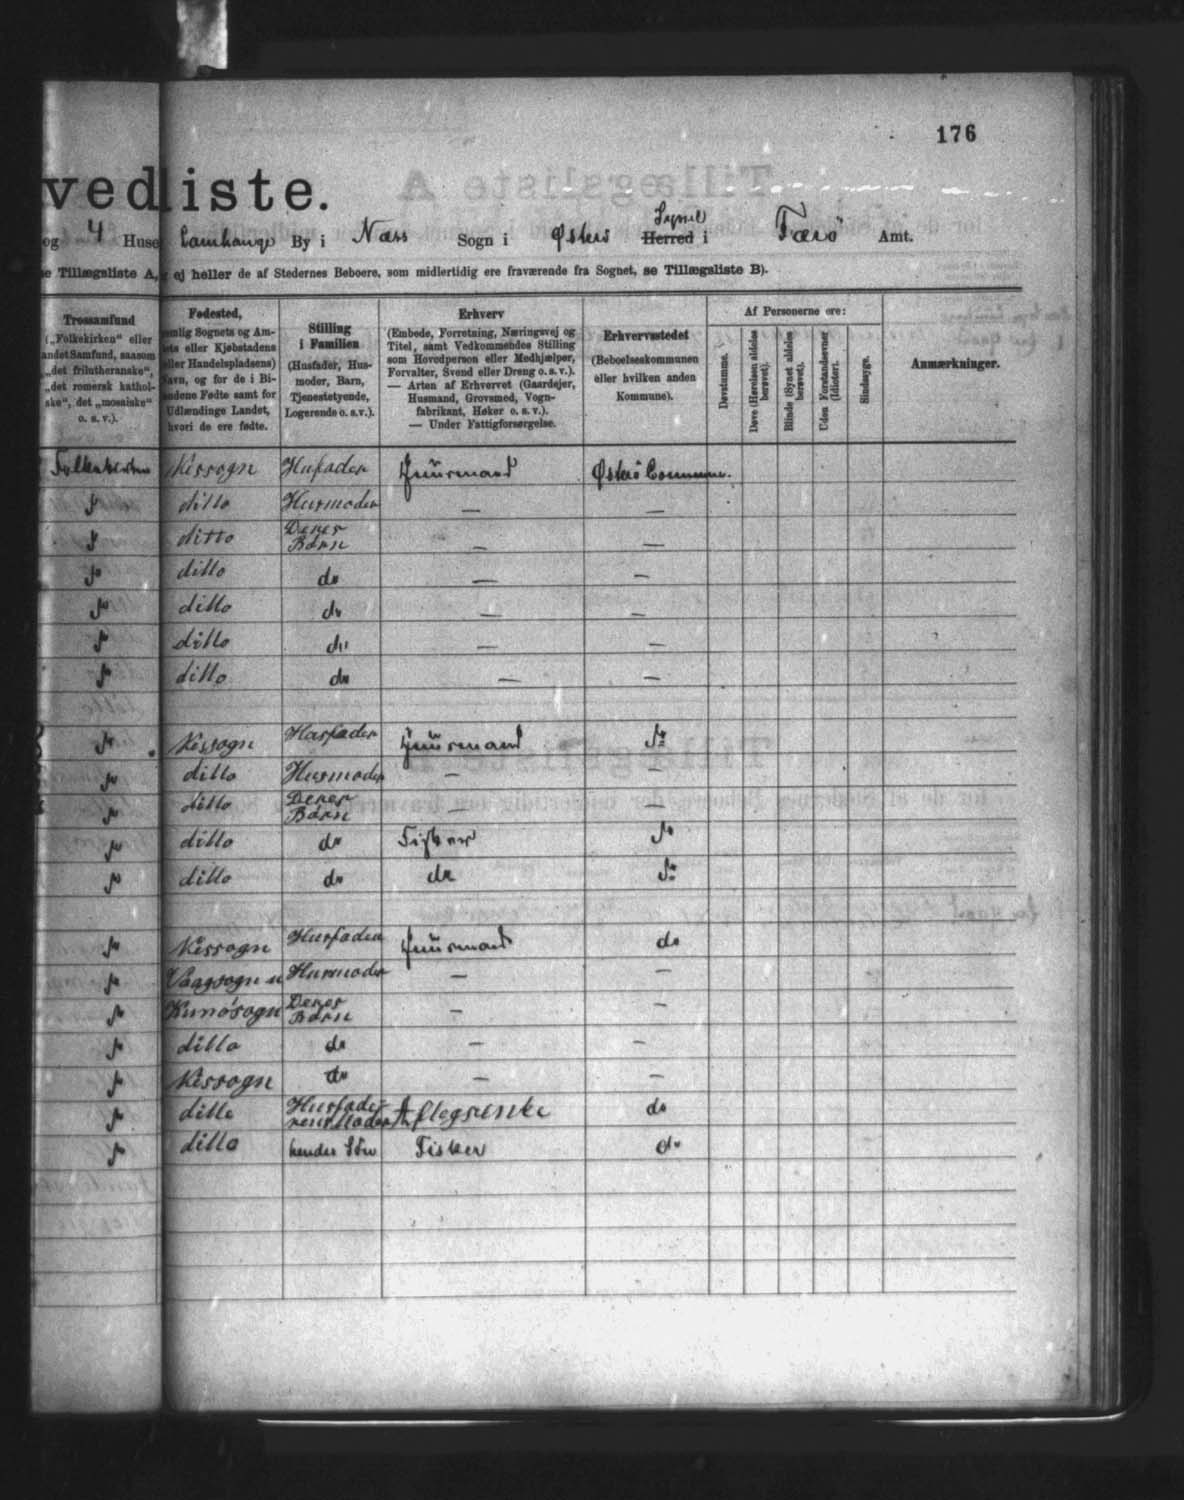 176
vedliste.
og 4 Huse Lamhauge By i Næss Sogn i Østerö Syssel Herred i Færö Amt.
e Tillægsliste A, ej heller de af Stedernes Beboere, som midlertidig ere fraværende fra Sognet, se Tillægsliste B).
Trossamfund
(„Folkekirken“ eller
andet Samfund, saasom
„det frilutheranske“,
„det romersk kathol-
ske“, det „mosaiske“
o. s. v.).
Fødested,
nemlig Sognets og Am-
tets eller Kjøbstadens
eller Handelspladsens)
Navn, og for de i Bi-
landene Fødte samt for
Udlændinge Landet,
hvori de ere fødte.
Stilling
i Familien
(Husfader, Hus-
moder, Barn,
Tjenestetyende,
Logerende o. s. v.).
Erhverv
(Embede, Forretning, Næringsvej og
Titel, samt Vedkommendes Stilling
som Hovedperson eller Medhjælper,
Forvalter, Svend eller Dreng o. s. v.).
— Arten af Erhvervet (Gaardejer,
Husmand, Grovsmed, Vogn-
fabrikant, Høker o. s. v.).
— Under Fattigforsørgelse.
Erhvervsstedet
(Beboelseskommunen
eller hvilken anden
Kommune).
Af Personerne ere:
Døvstumme.
Døve (Hørelsen aldeles
berøvet).
Blinde (Synet aldeles
berøvet).
Uden Forstandsevner
(Idioter).
Sindssyge.
Anmærkninger.
Folkekirken Nessogn Husfader Huusmand Østerö Commune.
do ditto Husmoder — —
do ditto Deres Börn — —
do ditto do — —
do ditto do — —
do ditto do — —
do ditto do — —
do Nessogn Husfader Huusmand do
do ditto Husmoder — —
do ditto Deres Börn — —
do ditto do Fisker do
do ditto do do do
do Nessogn Husfader Huusmand do
do Vaagsogn Husmoder — —
do Kunösogn Deres Börn — —
do ditto do — —
do Nessogn do — —
do ditto Husfaderens Moder Aftægsenke do
do ditto hendes Sön Fisker do